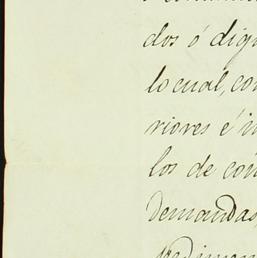 dos ó dig
lo cual, co
riores é i
los de co
Demandas,